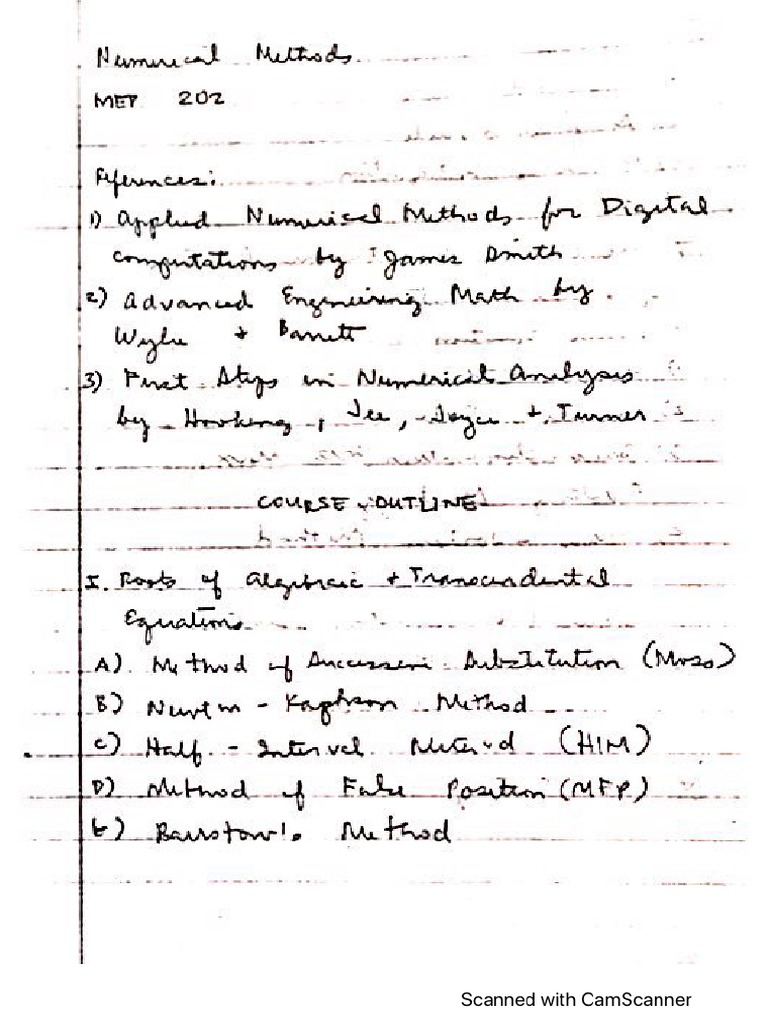 Numerical Methods
MEP 202
References:
1) Applied Numerical Methods for Digital
computations by James Smith
2) Advanced Engineering Math by
Wylie + Barrett
3) First Steps in Numerical Analysis
by Hosking, Joe, Joyce + Turner
COURSE OUTLINE
I. Roots of Algebraic + Transcendental
Equations
A) Method of Successive Substitution (MOSS)
B) Newton - Raphson Method
C) Half - Interval Method (HIM)
D) Method of False Position (MFP)
E) Bairstow's Method
Scanned with CamScanner